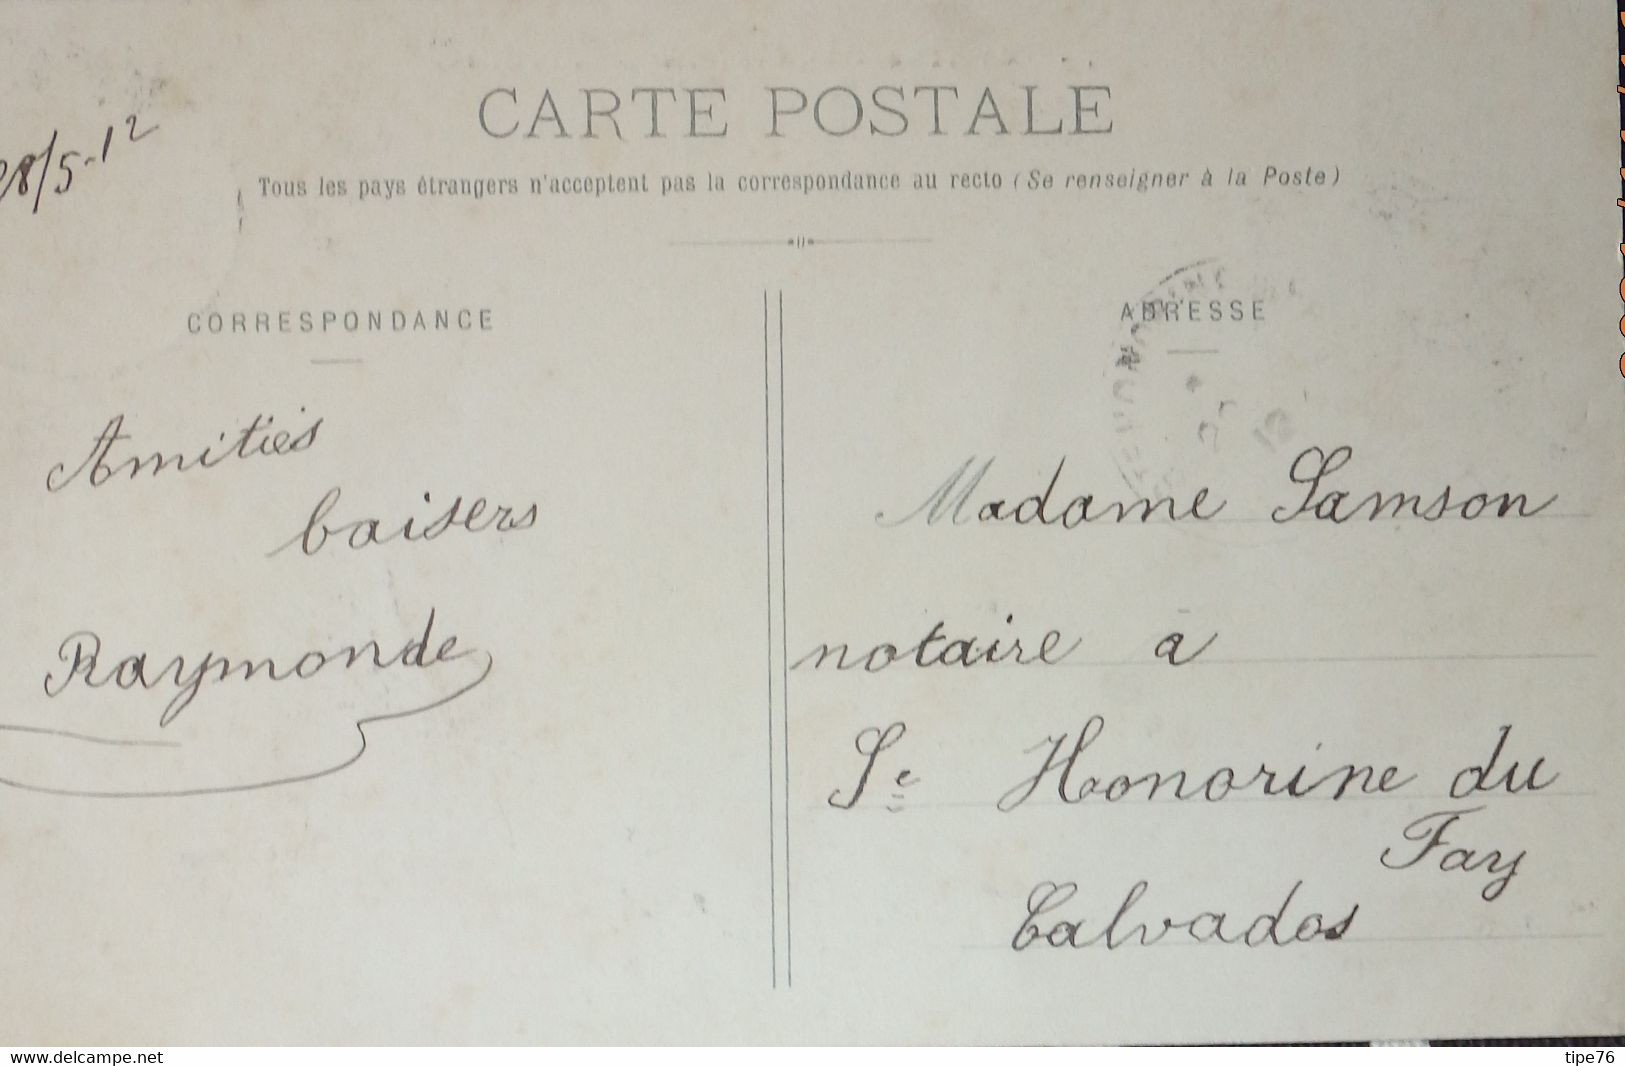 CARTE POSTALE
28/5-12
Tous les pays étrangers n'acceptent pas la correspondance au recto (Se renseigner à la Poste)
CORRESPONDANCE
Amitiés
baisers
Raymonde
ADRESSE
Madame Samson
notaire à
Se Honorine du
Fay
Calvados
www.delcampe.net
tipe76